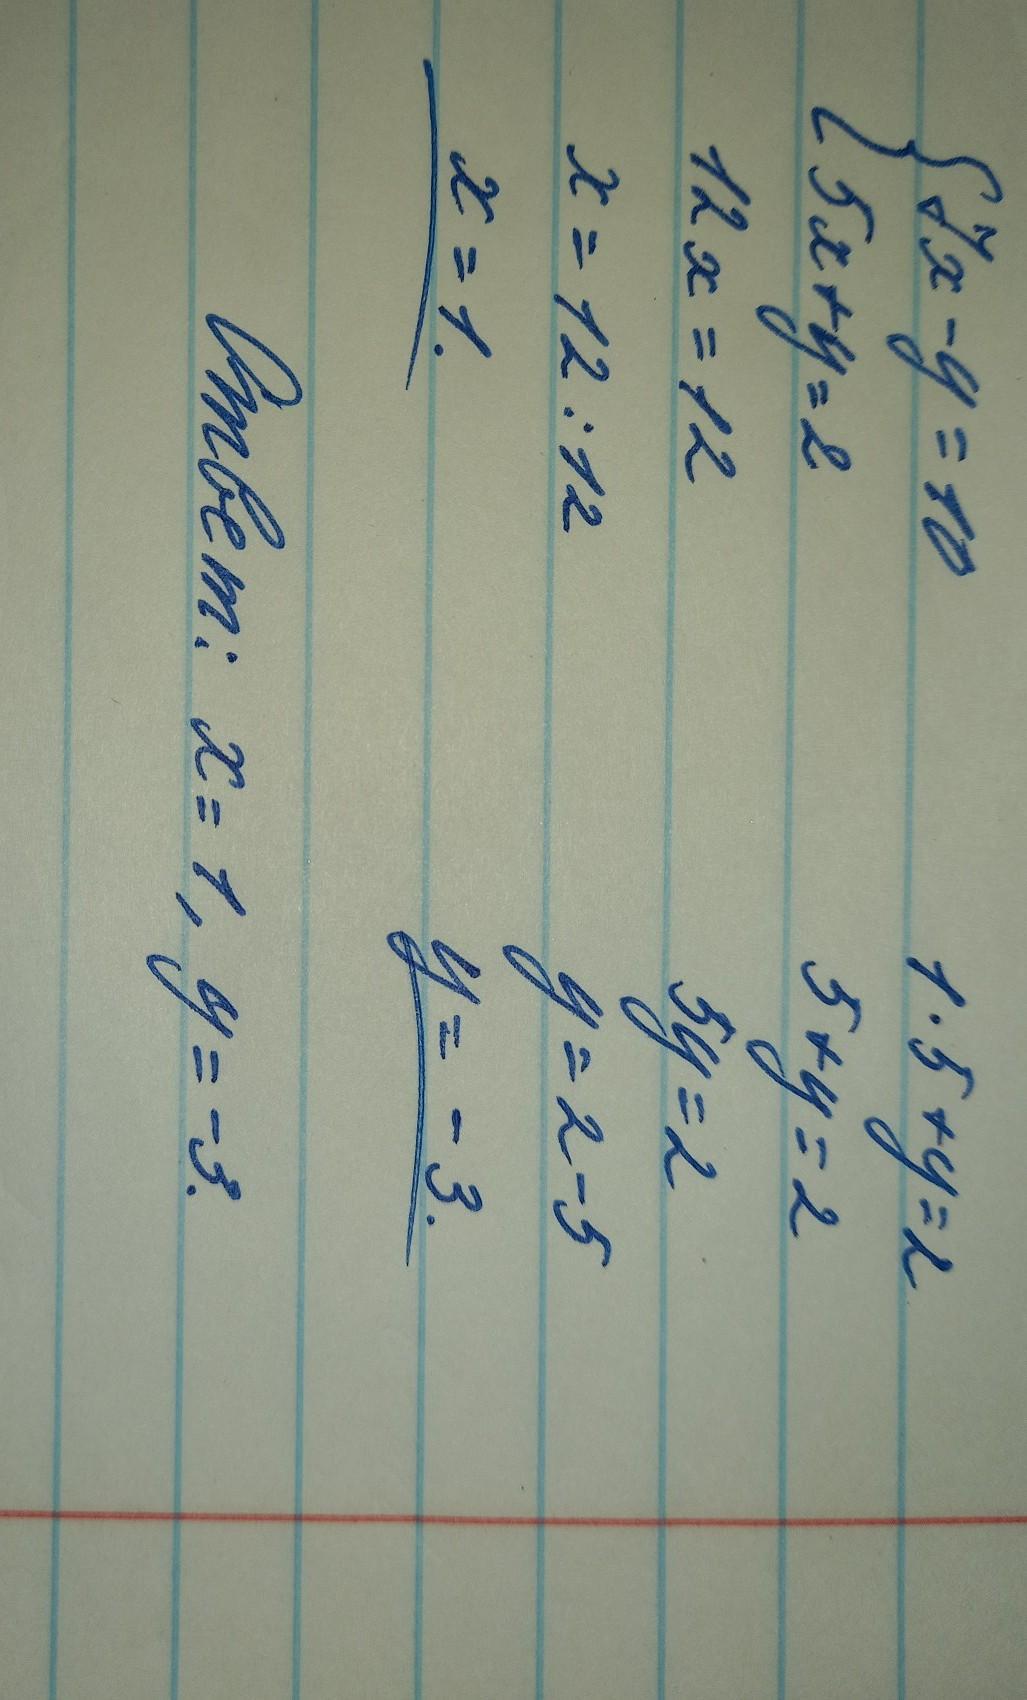 { 7x - y = 10
5x + y = 2
12x = 12
x = 12 : 12
x = 1.
1 · 5 + y = 2
5 + y = 2
5y = 2
y = 2 - 5
y = -3.
Ответ: x = 1, y = -3.